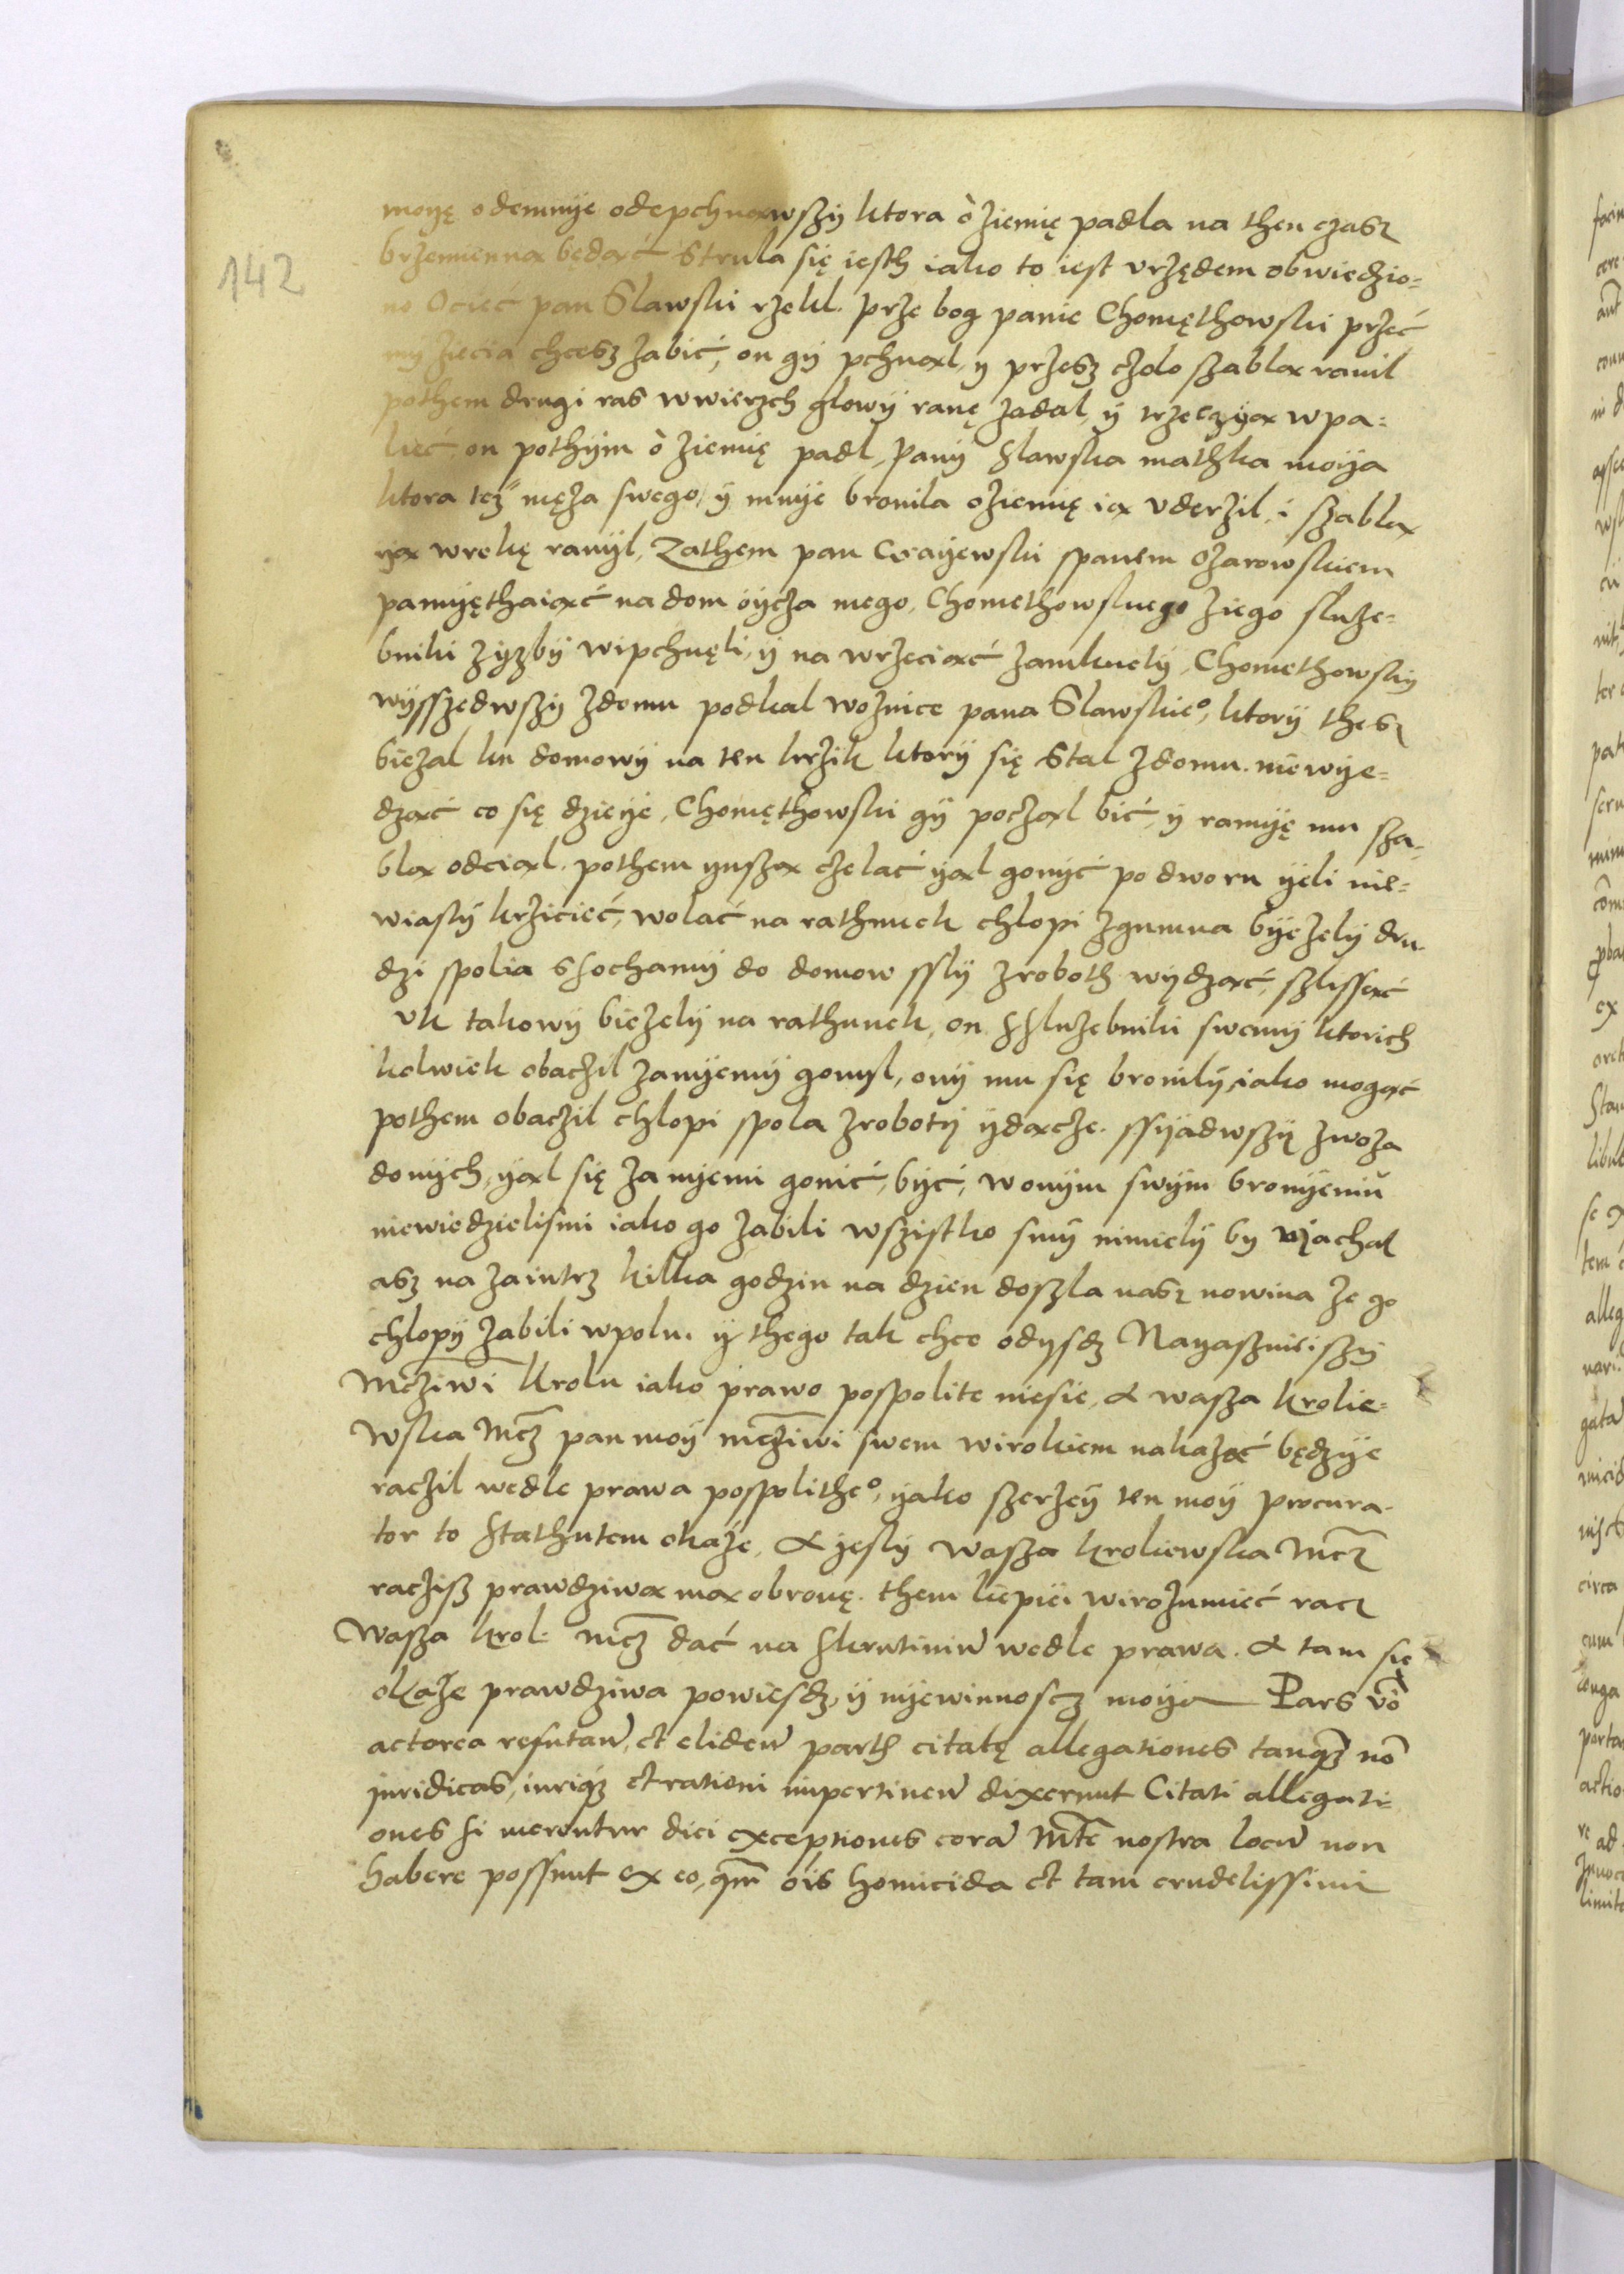 142
moyę odemnye odepchnąwszy ktora o ziemię padla na then czasz
brzemienna będącz Strula się iesth iako to iest vrzędem obwiedzio=
no Ociec pan Slawski rzekl. prze bog panie Chomęthowski przeć
my ziecia chcesz zabić, on gy pchnąl, y przesz czolo szablą ranil
pothem drugi ras wwierzch glowy ranę zadal, y trzeczyą wpa=
liec, on pothym o ziemię padl, Pany slawska mathka moya
ktora też męża swego, y mnye bronila oziemię ią vderzil, i szablą
yą wrękę ranyl, Zathem pan Crayewski spanem Ożarowskiem
pamyęthaiąć na dom oycza mego, Chomethowskiego ziego sluże=
bniki zyzby wipchnęli, y na wrzeciąć zamknely, Chomethowsky
wysszedwszy zdomu podkal woznice pana Slawskie°, ktory thesz
bieżal kn domowy na ten krzik ktory się stal zdomu. niewye=
dząć co się dzieye, Chomęthowski gy począl bić, y ramyę mu sza=
blą odciąl. pothem ynszą czelać yąl gonyć po dworu yęli nie=
wiasty krziciec, wolać na rathunek chlopi zgumna byeżely dru
dzi spolia ssochamy do domow szly zroboth wydząć, szlissąć
vk takowy bieżely na rathunek, on sslużebniki swemy ktorich
kolwiek obaczil zanyemy gonyl, ony mu się bronily, iako mogąć
pothem obaczil chlopi spola zroboty ydącze. ssyadwszy zwoza
donych, yąl się za nyemi gonić, być, wonym swym bronyeniu
niewiedzielismi iako go zabili wszistko smy nimiely by vjachal
asz na zaintrz kilka godzin na dzien doszla nasz nowina że go
chlopy zabili wpolu. y thego tak chce odysdz Nayasznieiszy
Mcziwi Krolu iako prawo pospolite niesie, A wasza krolie=
wska Mcz pan moy mcziwi swem wirokiem nakazać będzye
raczil wedle prawa pospolithe°, yako szerzey ten moy procura-
tor to Stathutem okaże, A jesly wasza kroliewska Mcz
raczisz prawdziwą mą obronę. them liepiei wirozumieć racz
Wasza krol: Mcz dać na skrutiniu wedle prawa. A tam się
okaże prawdziwa powiesdz, y nyewinnoscz moya Pars vo
actorea refutan, et eliden parth citatę allegationes tanqz no
juridicas, iuriqz et rationi impertinen dixerunt Citati allegati=
ones si merentur dici exceptiones cora Mte nostra locu non
habere possunt ex eo, qm ois homicida et tam crudelissimi